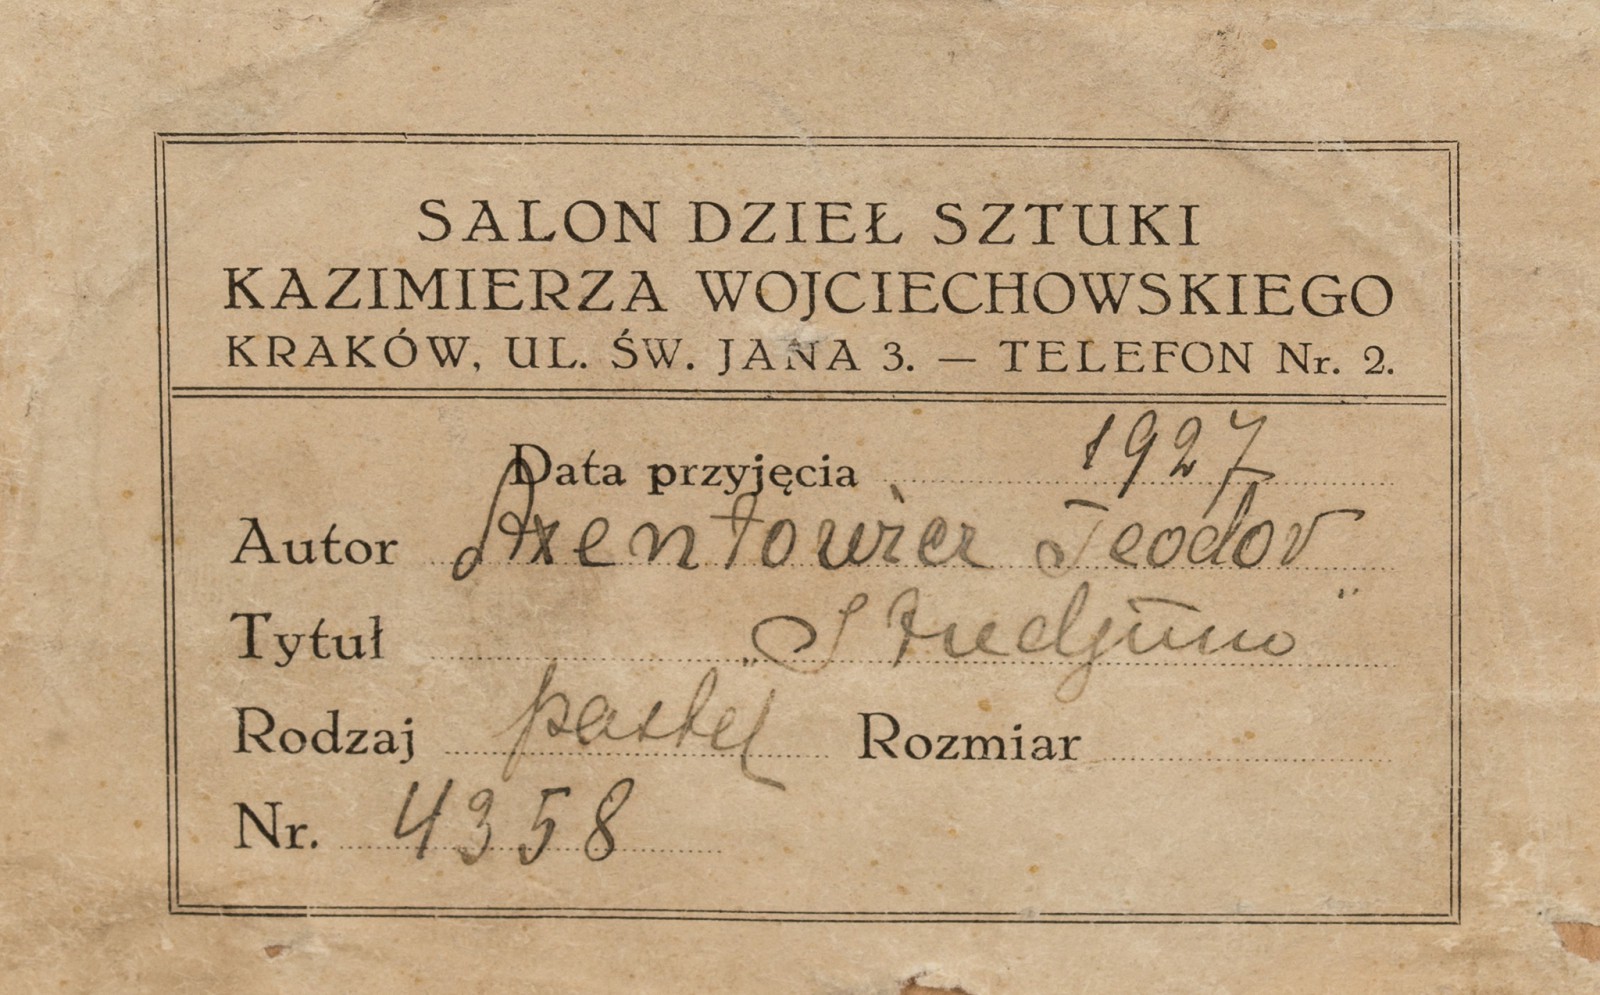 SALON DZIEŁ SZTUKI
KAZIMIERZA WOJCIECHOWSKIEGO
KRAKÓW, UL. ŚW. JANA 3. — TELEFON Nr. 2.
Data przyjęcia 1927
Autor Axentowicz Teodor
Tytuł
Rodzaj pastel Rozmiar
Nr. 4358